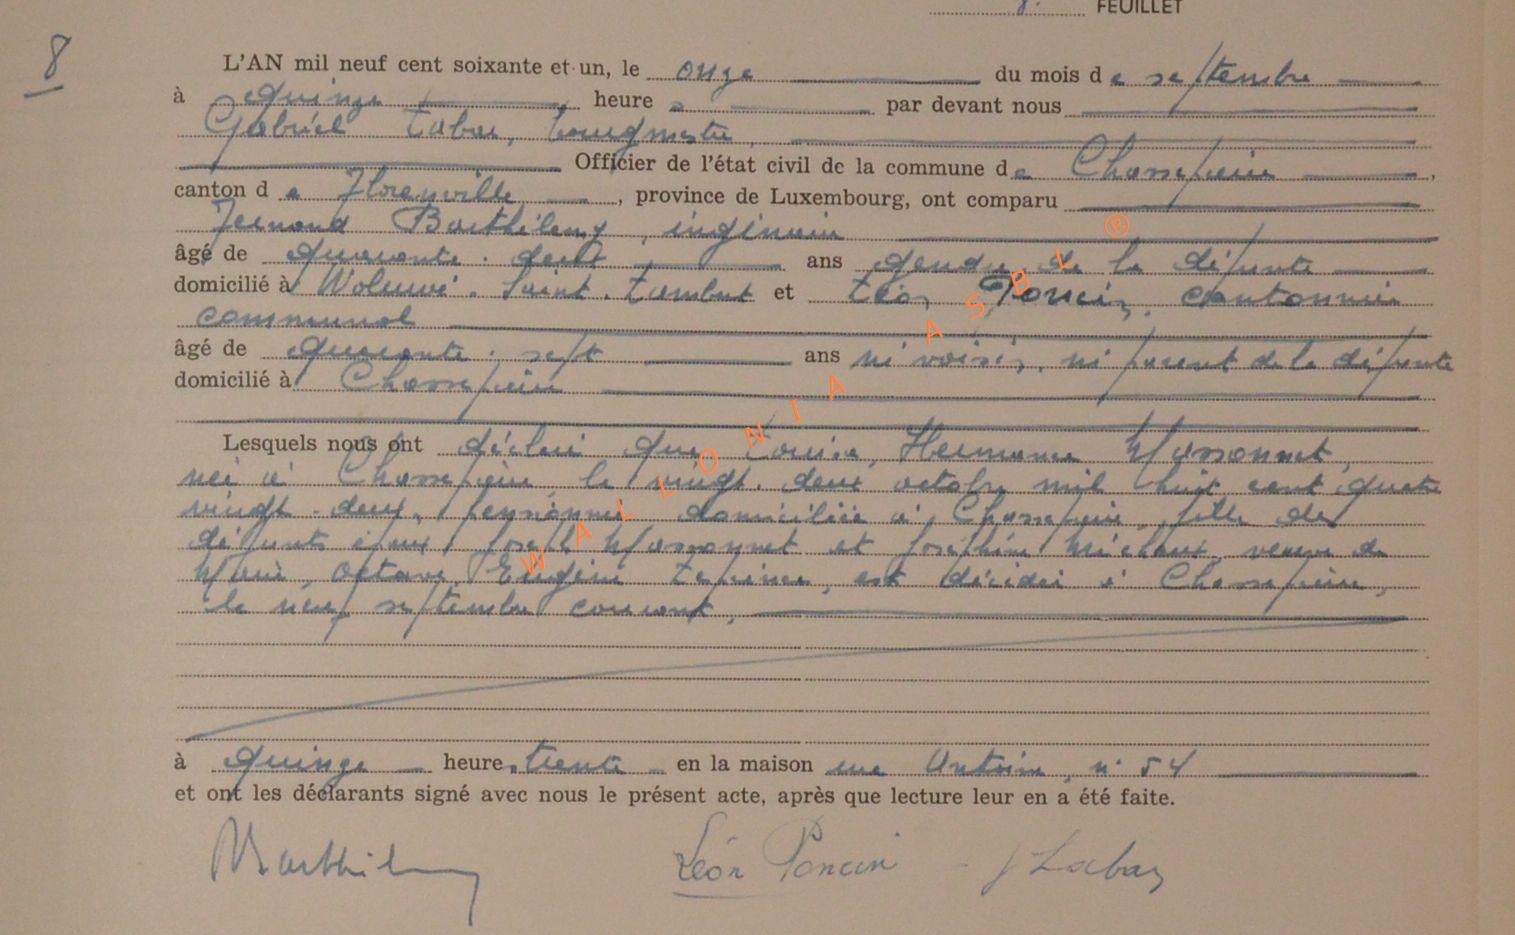 8. FEUILLET
8
L'AN mil neuf cent soixante et un, le onze du mois de septembre
à quinze heures par devant nous
Gabriël Labar, bourgmestre,
Officier de l'état civil de la commune de Chassepierre,
canton de Florenville, province de Luxembourg, ont comparu
Fernand Barthélemy, ingénieur
âgé de quarante-deux ans gendre de la défunte
domicilié à Woluwé-Saint-Lambert et Léon Poncin, cantonnier
communal
âgé de quarante-sept ans ni voisin, ni parent de la défunte
domicilié à Chassepierre
Lesquels nous ont déclaré que Louise, Hermance Massonnet,
née à Chassepierre, le vingt-deux octobre mil huit cent quatre
vingt-deux, pensionnée domiciliée à Chassepierre, fille des
défunts époux Joseph Massonnet et Joséphine Michaux, veuve de
Marie, Octave, Eugène, est décédée à Chassepierre,
le neuf septembre courant,
à quinze heures trente en la maison rue Antoine, n° 54
et ont les déclarants signé avec nous le présent acte, après que lecture leur en a été faite.
Barthélemy Léon Poncin - G Labar
WALLONIA ASBL ®